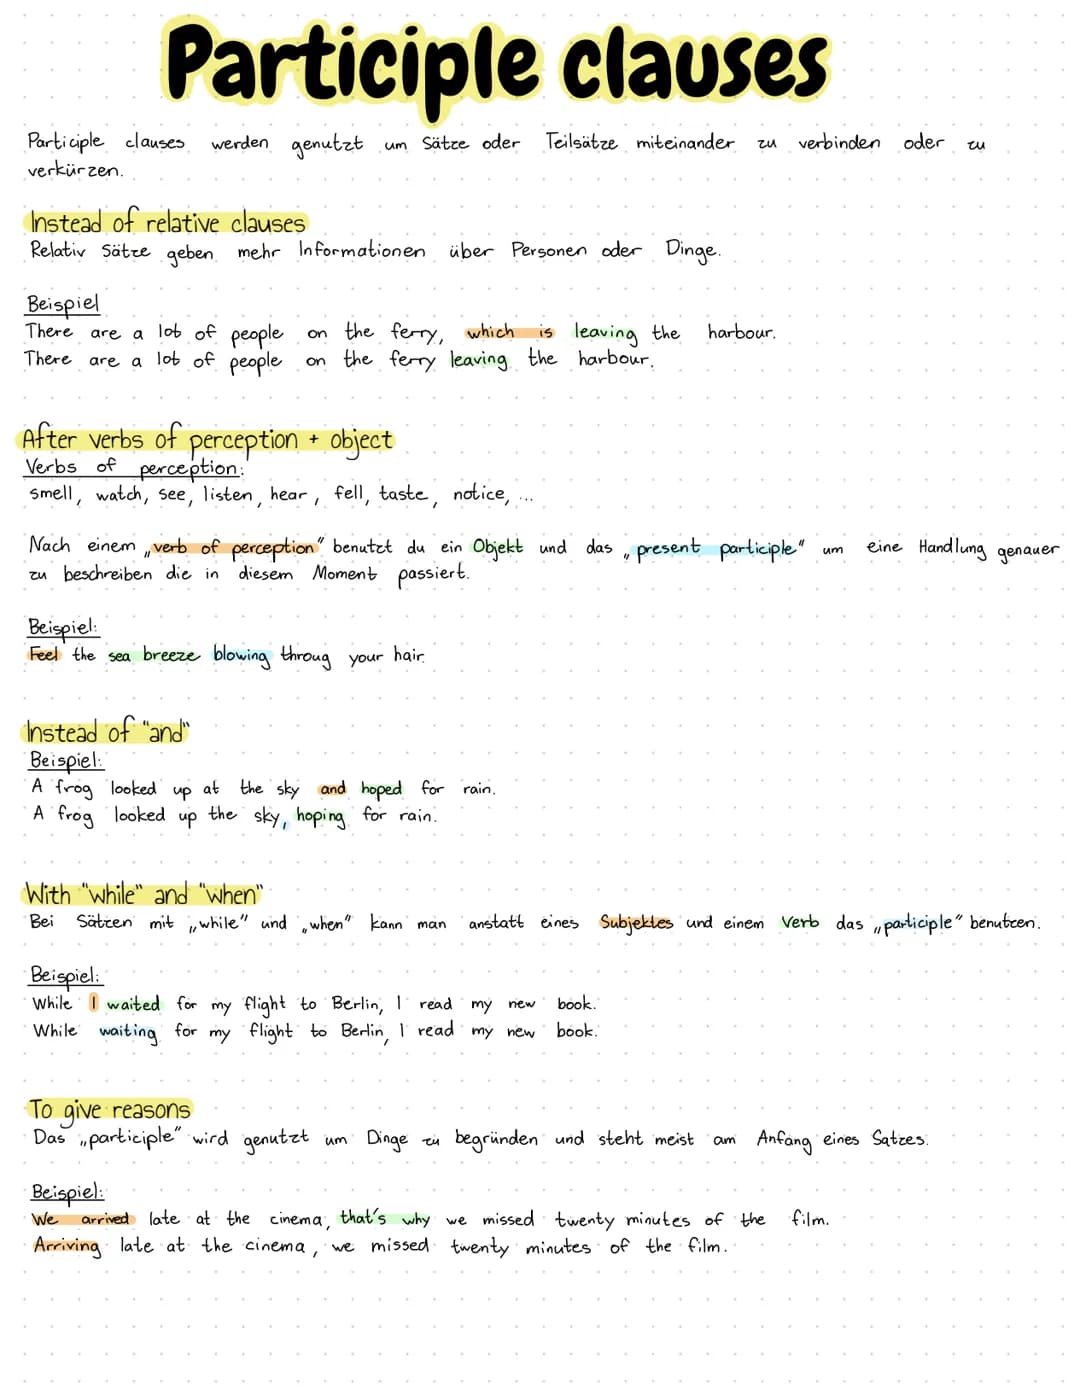 Participle clauses
Participle clauses werden genutzt um Sätze oder Teilsätze miteinander zu verbinden oder zu
verkürzen.
Instead of relative clauses
Relativ Sätze geben mehr Informationen über Personen oder Dinge.
Beispiel
There are a lot of people on the ferry, which is leaving the harbour.
There are a lot of people on the ferry leaving the harbour.
After verbs of perception + object
Verbs of perception:
smell, watch, see, listen, hear, fell, taste, notice, ...
Nach einem „verb of perception" benutzt du ein Objekt und das „present participle" um eine Handlung genauer
zu beschreiben die in diesem Moment passiert.
Beispiel:
Feel the sea breeze blowing throug your hair.
Instead of "and"
Beispiel:
A frog looked up at the sky and hoped for rain.
A frog looked up the sky, hoping for rain.
With "while" and "when"
Bei Sätzen mit „while" und „when" kann man anstatt eines Subjektes und einem Verb das „participle" benutzen.
Beispiel:
While I waited for my flight to Berlin, I read my new book.
While waiting for my flight to Berlin, I read my new book.
To give reasons
Das „participle" wird genutzt um Dinge zu begründen und steht meist am Anfang eines Satzes.
Beispiel:
We arrived late at the cinema, that's why we missed twenty minutes of the film.
Arriving late at the cinema, we missed twenty minutes of the film.